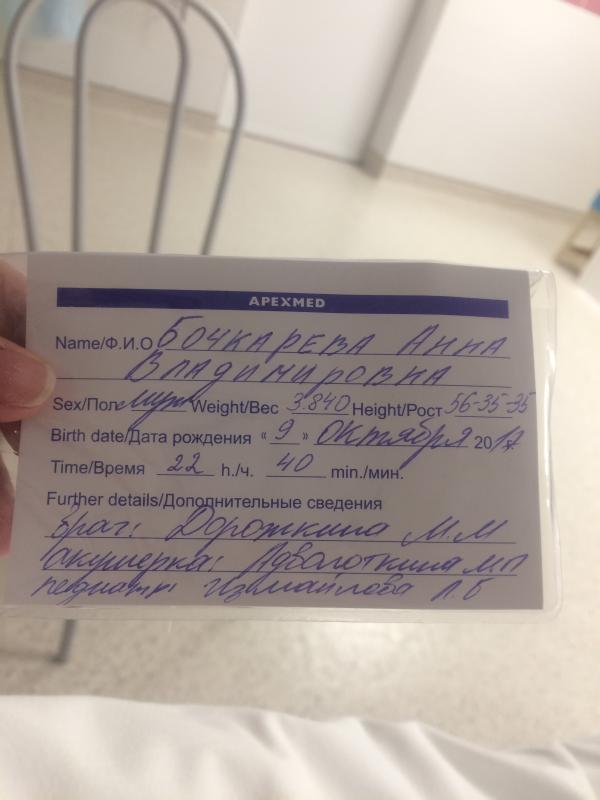 APEXMED
Name/Ф.И.О Бочкарева Анна
Владимировна
Sex/Пол муж Weight/Вес 3.840 Height/Рост 56-35-35
Birth date/Дата рождения «9» октября 2017
Time/Время 22 h./ч. 40 min./мин.
Further details/Дополнительные сведения
Врач: Дорожкина М.М
акушерка: М.П
педиатр: Измайлова Л.Б